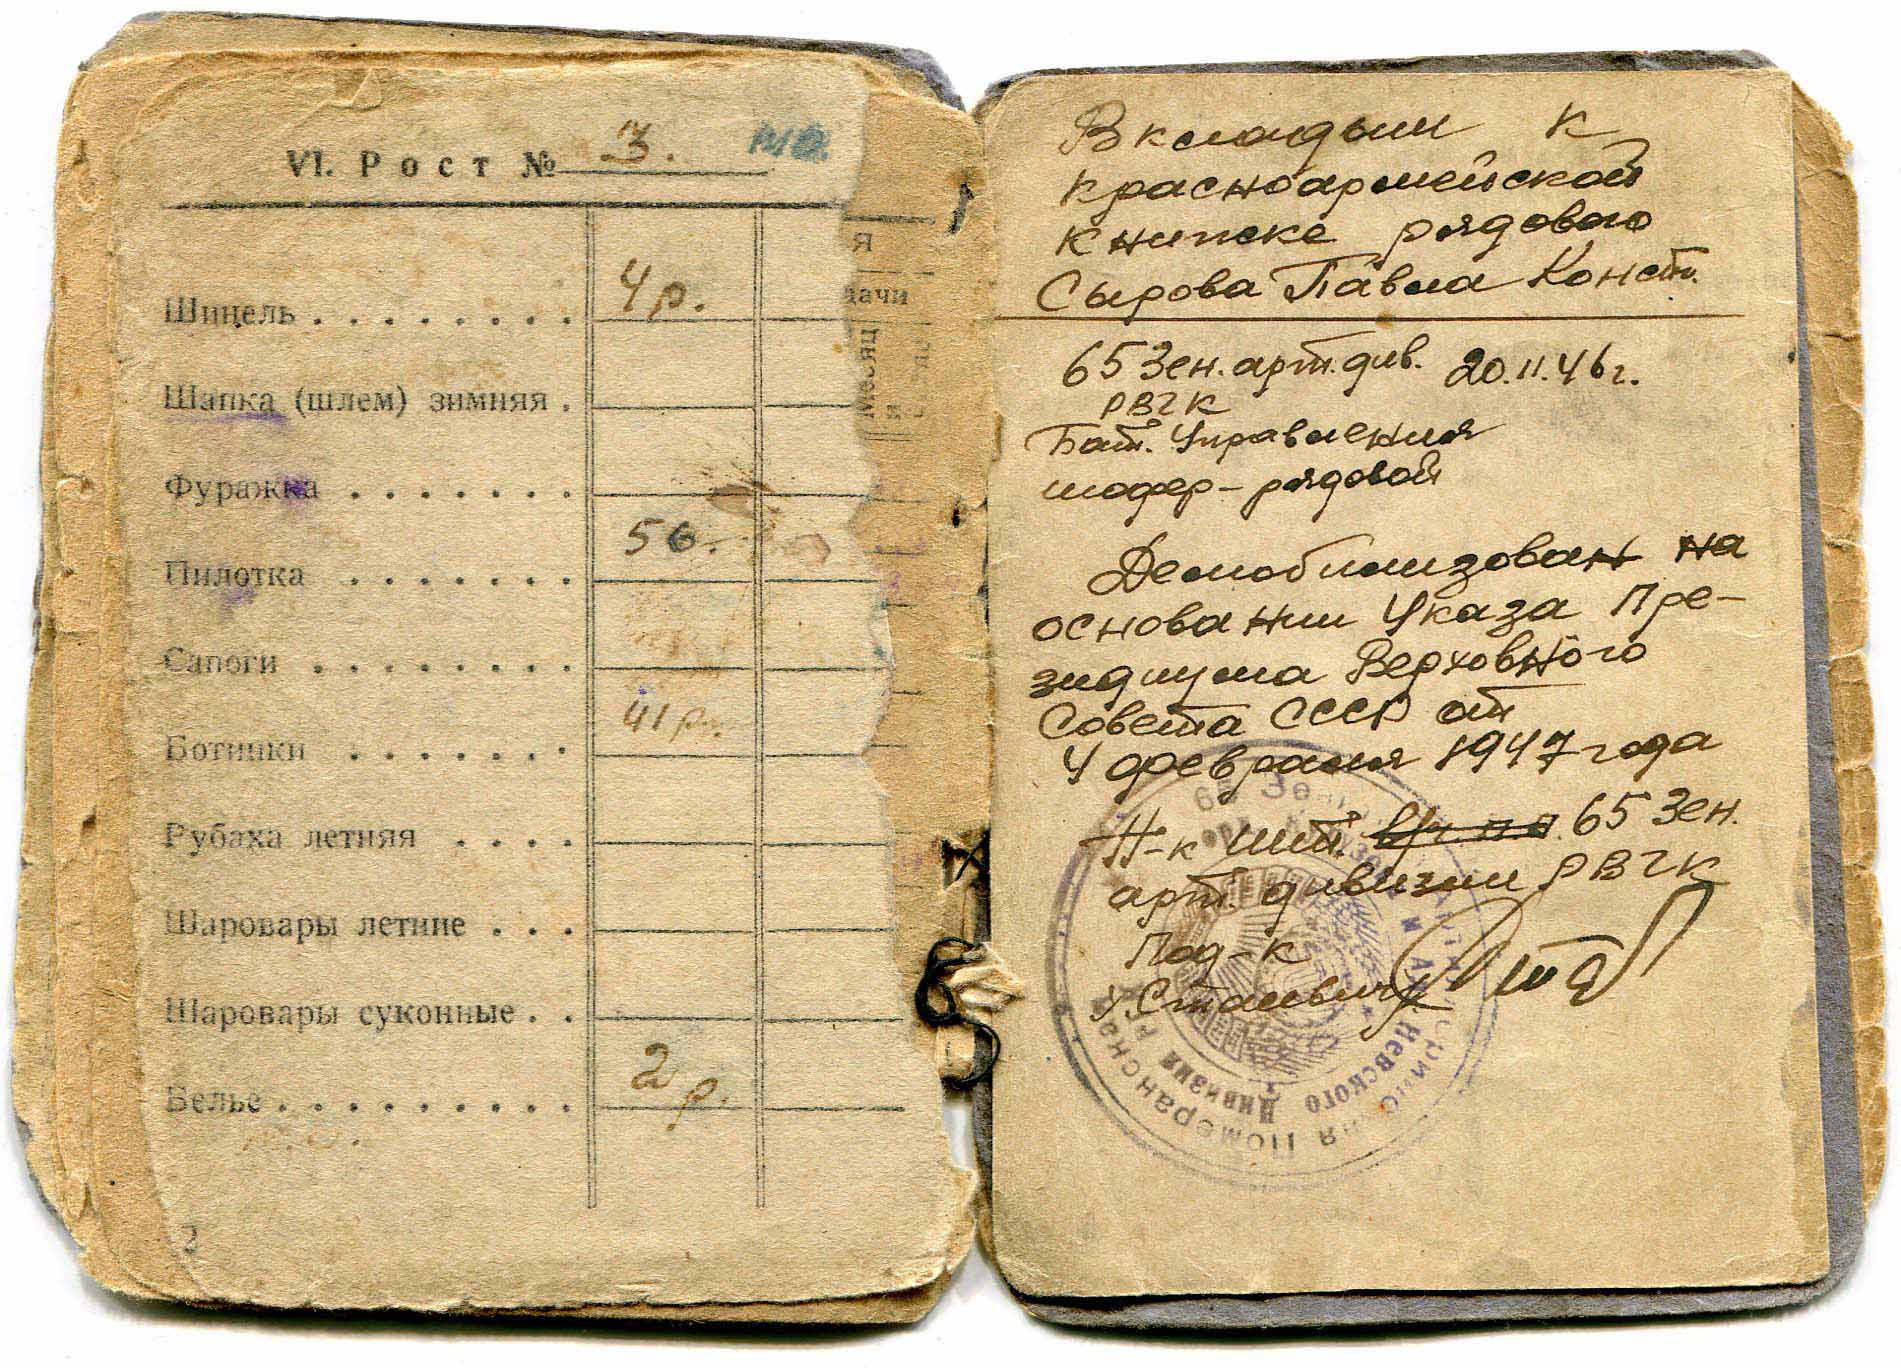 VI. Рост № 3.
я
дачи
Месяц
Шинель . . . . . . . . 4р.
Шапка (шлем) зимняя .
Фуражка . . . . . . .
Пилотка . . . . . . . 56.
Сапоги . . . . . . . .
Ботинки . . . . . . . 41р.
Рубаха летняя . . . .
Шаровары летние . . .
Шаровары суконные . .
Белье . . . . . . . . . 2р.
2
Вкладыш к
красноармейской
книжке рядового
Сырова Павла Конст.
65 Зен. арт. див. 20.11.46 г.
РВГК
Бат. Управления
шофер - рядовой
Демобилизован на
основании Указа Пре-
зидиума Верховного
Совета СССР от
4 февраля 1947 года
Н-к шт. 65 Зен.
арт. дивизии РВГК
Под-к
65 Зен
Померанская
Невского Дивизия